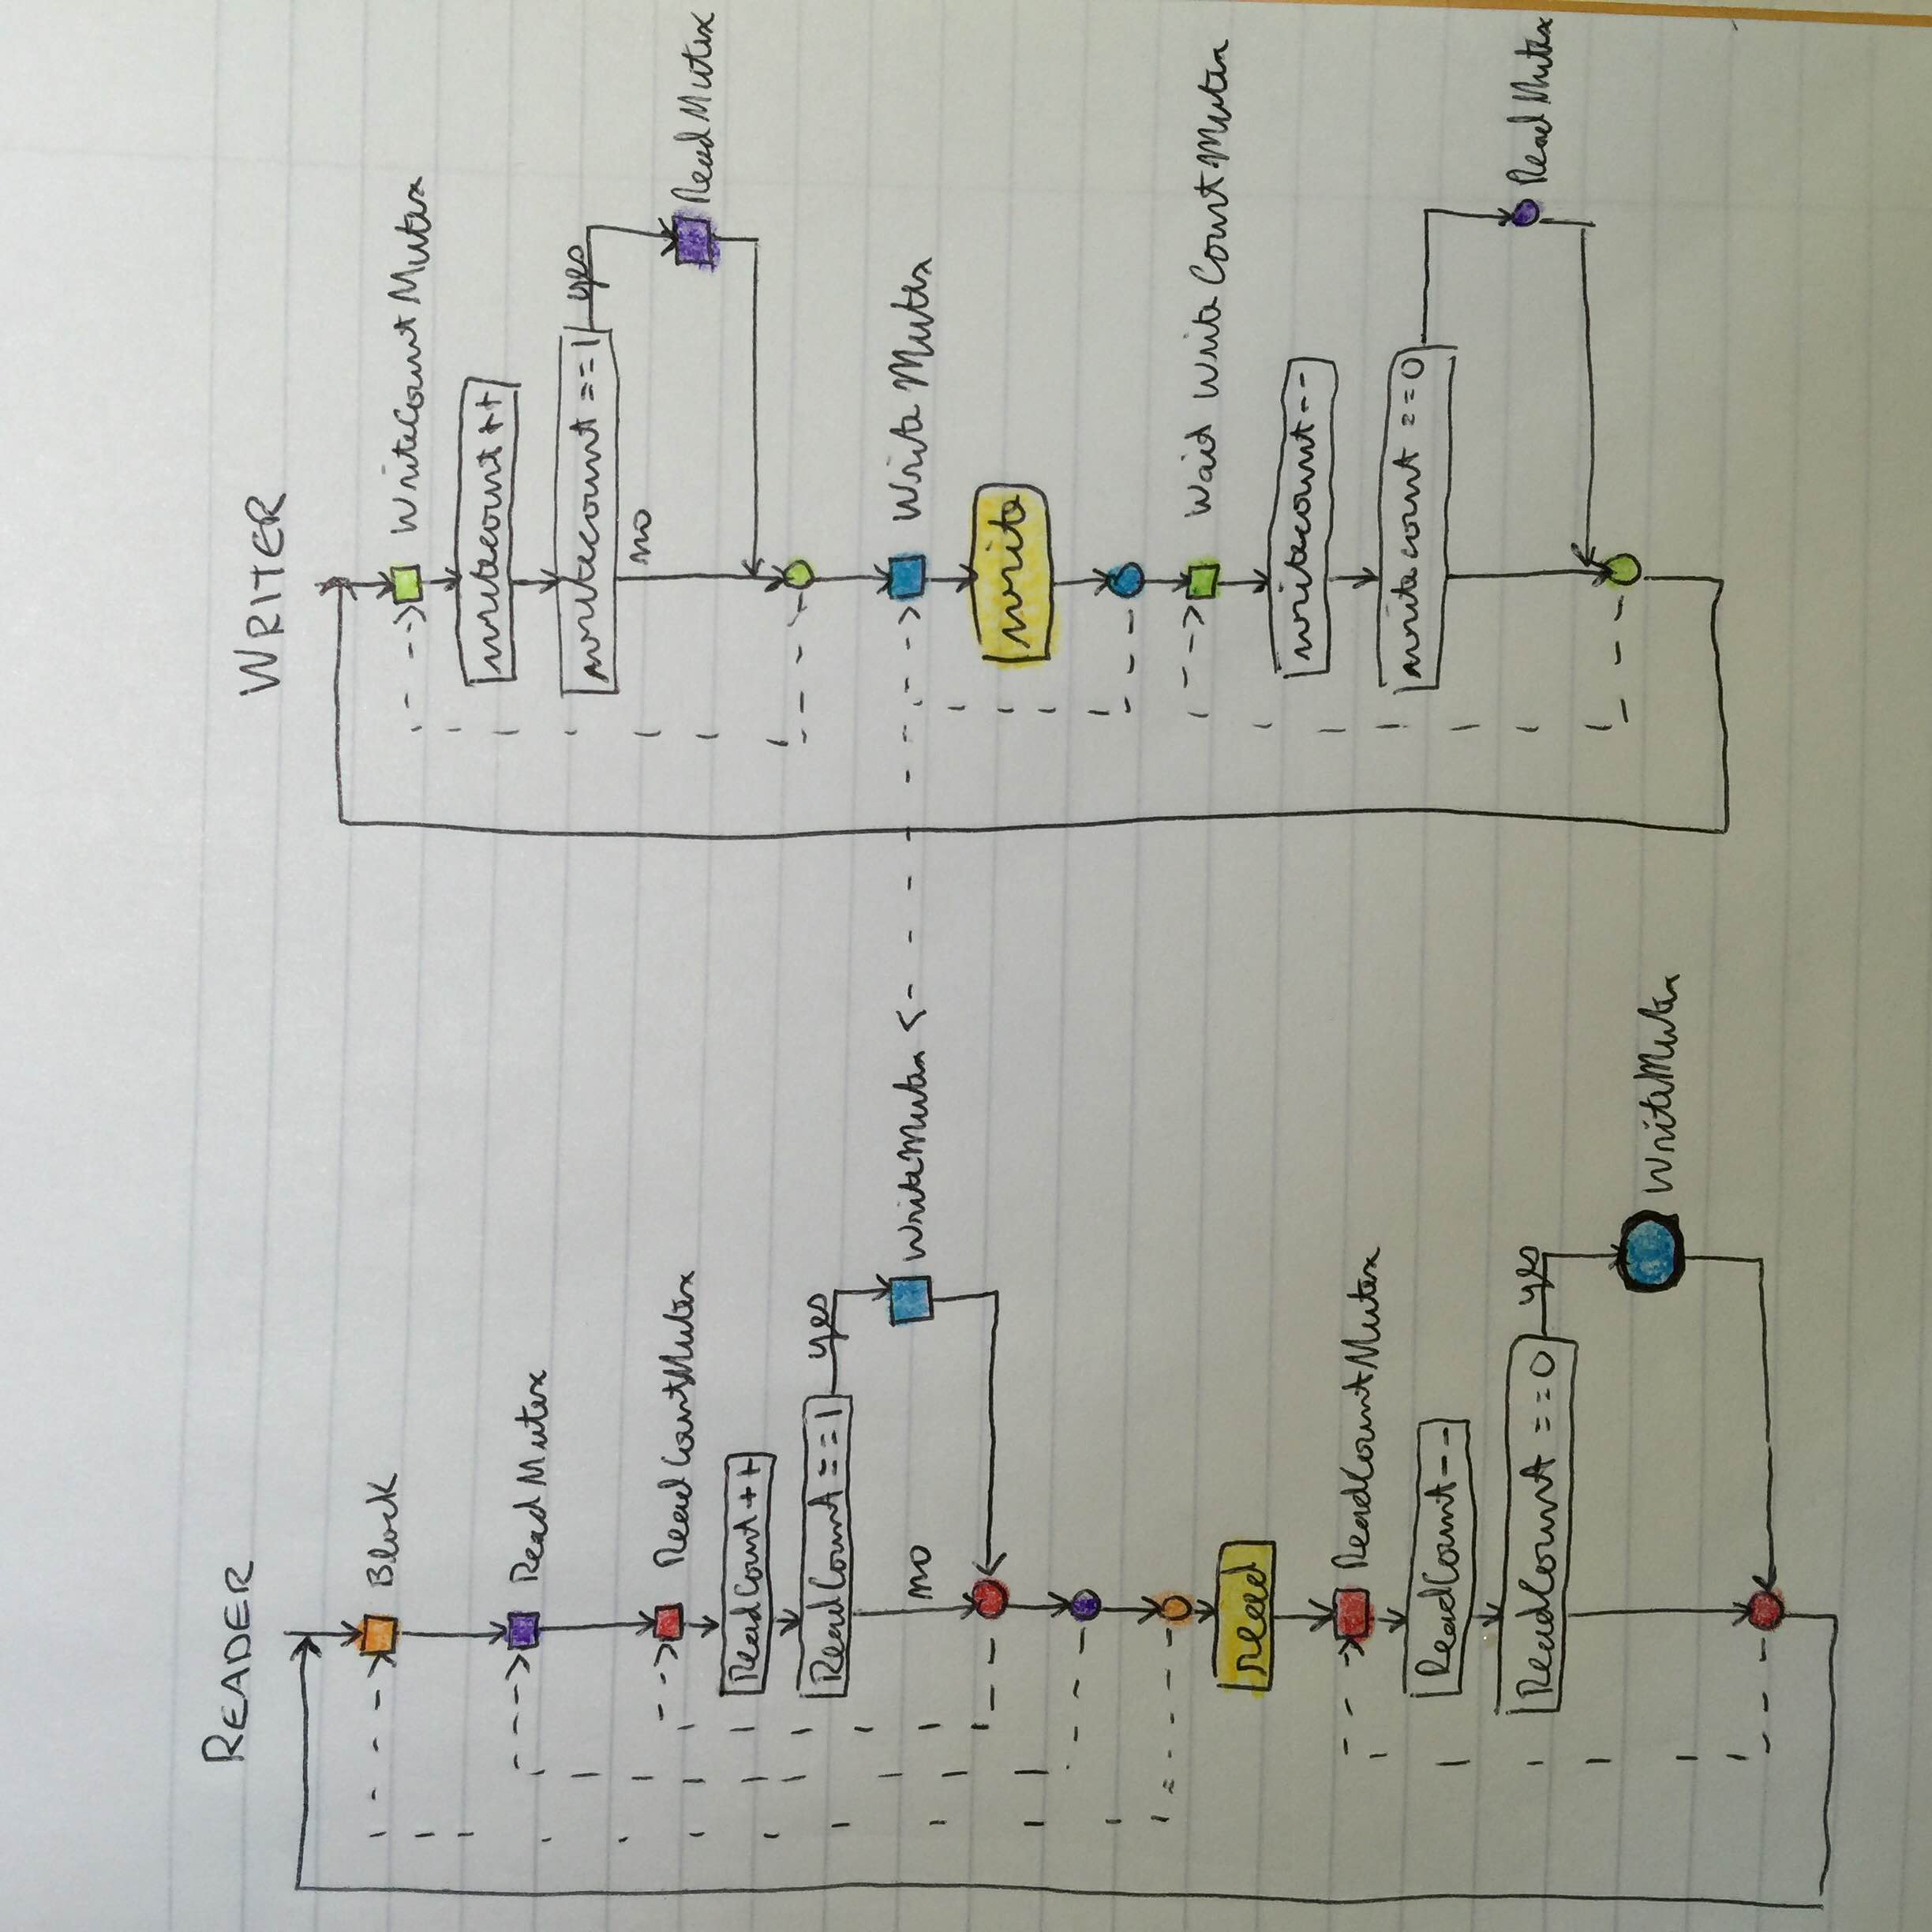 READER
Block
ReadMutex
ReadCountMutex
ReadCount++
ReadCount==1 yes
no
WriteMutex
read
ReadCountMutex
ReadCount--
ReadCount==0 yes
WriteMutex
WRITER
WriteCountMutex
writecount++
writecount==1 yes
no
ReadMutex
Write Mutex
write
Wait Write CountMutex
writecount--
writecount==0
ReadMutex